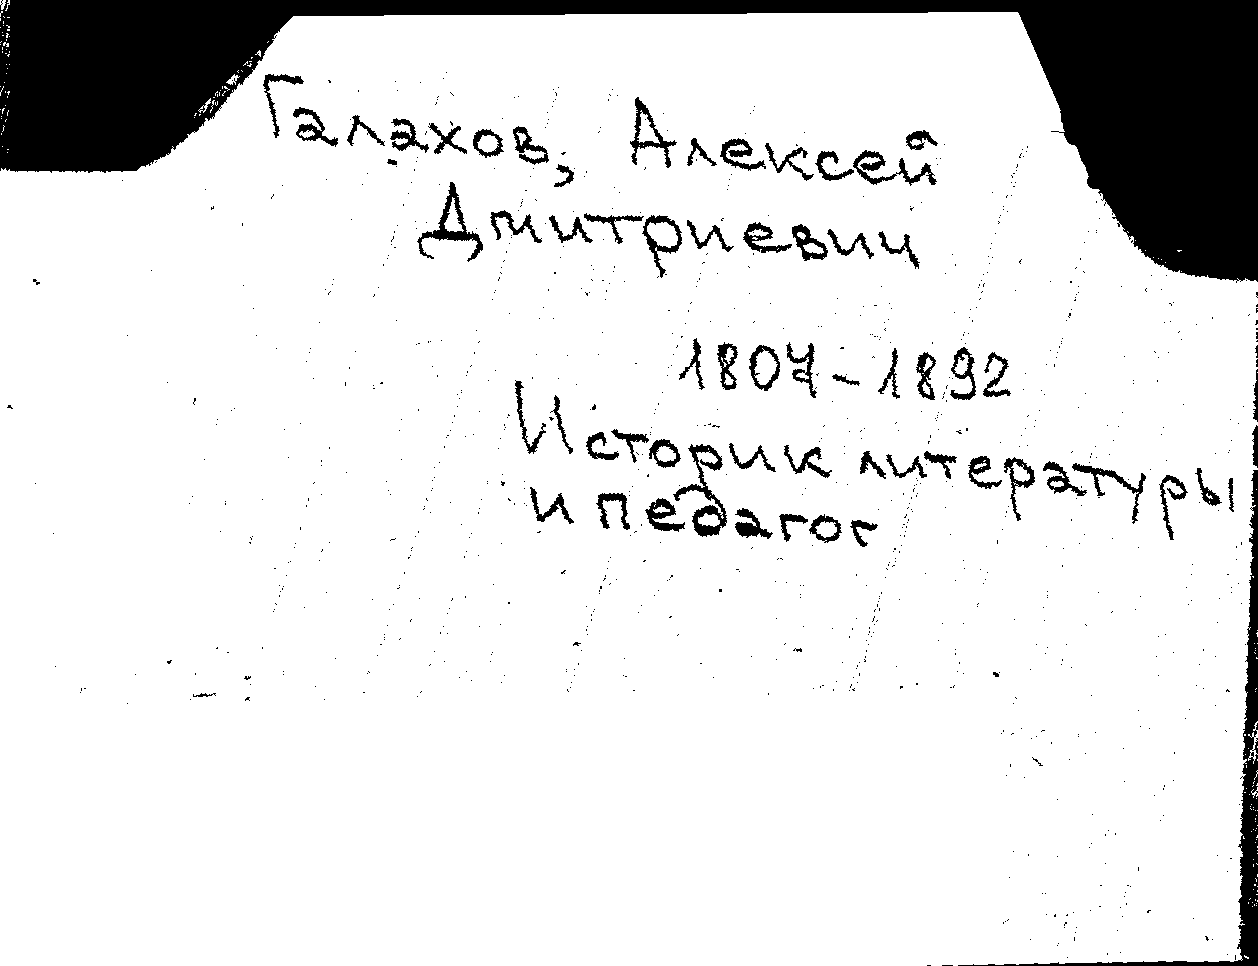 Галахов, Алексей
Дмитриевич
1807-1892
Историк литературы
и педагог